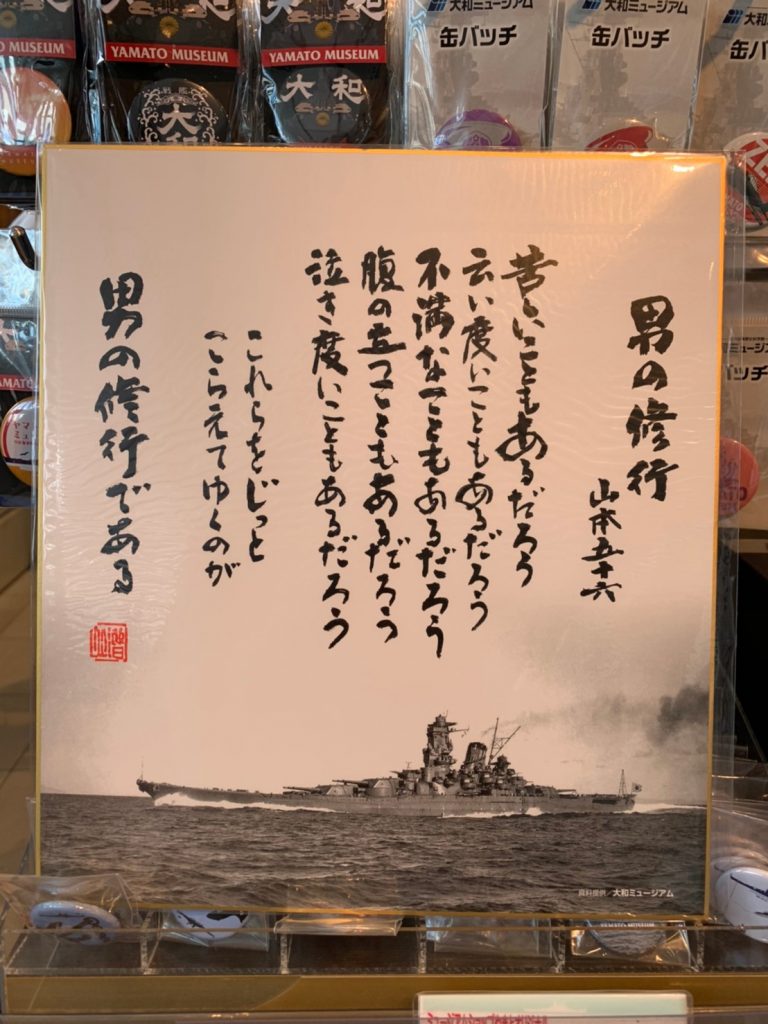 大和
大和
YAMATO MUSEUM
YAMATO MUSEUM
大和ミュージアム
缶バッチ
大和ミュージアム
缶バッチ
大和
大和
男の修行
山本五十六
苦しいこともあるだろう
云い度いこともあるだろう
不満なこともあるだろう
腹の立つこともあるだろう
泣き度いこともあるだろう
これらをじっと
こらえてゆくのが
男の修行である
資料提供/大和ミュージアム
YAMATO MUSEUM